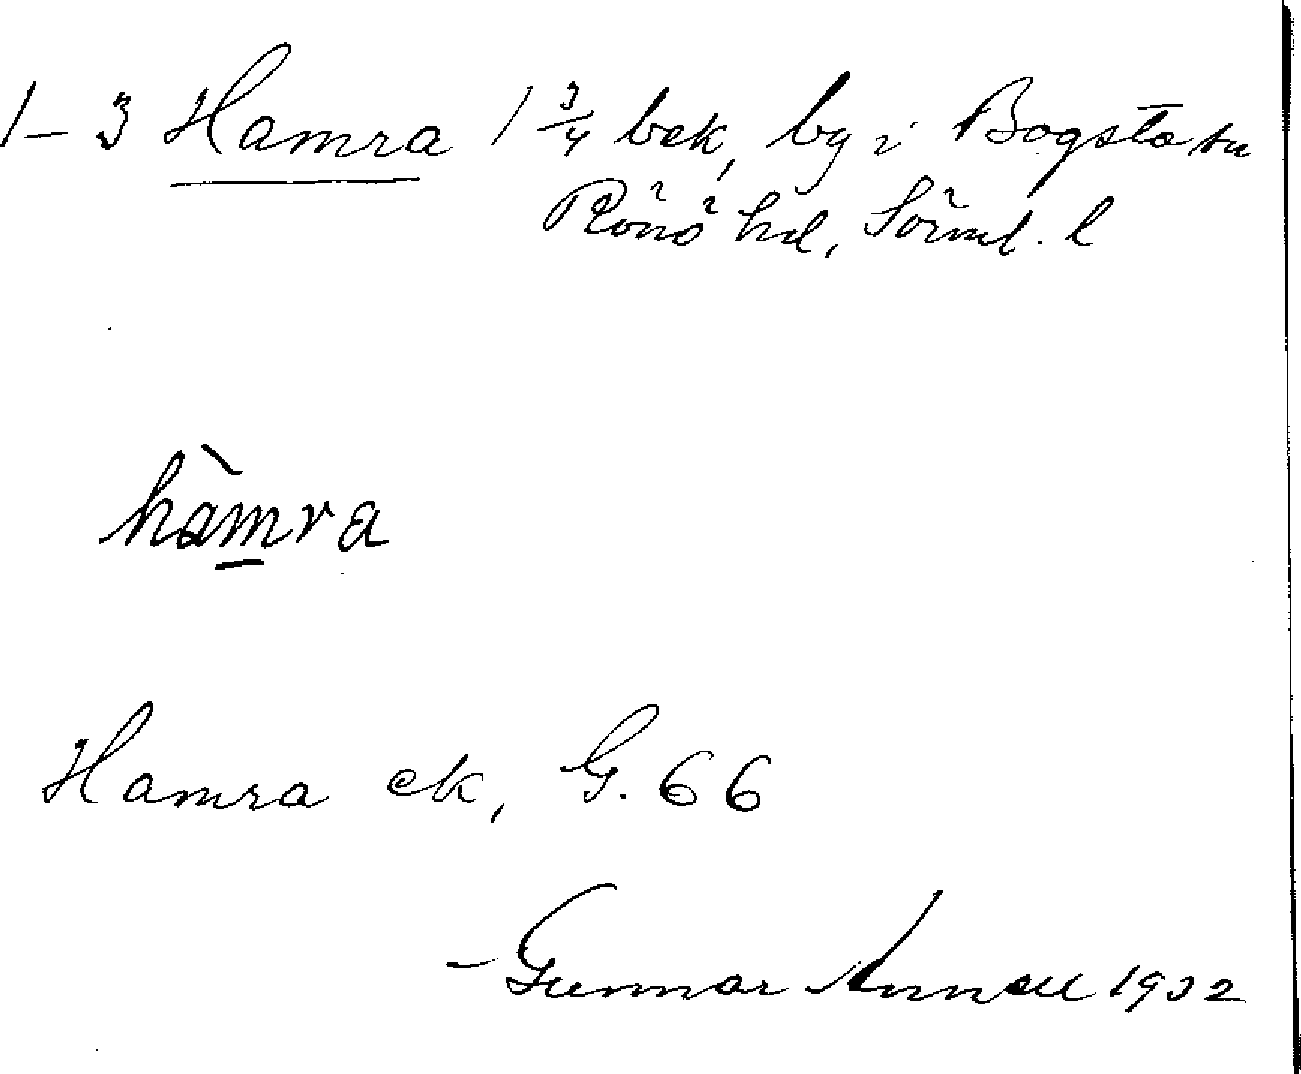 1-3 Hamra 1 3/4 bek, by i Bogsta sn
Rönö hd, Sörml. l
hàmra
Hamra ek, G. 66
- Gunnar Annell 1932